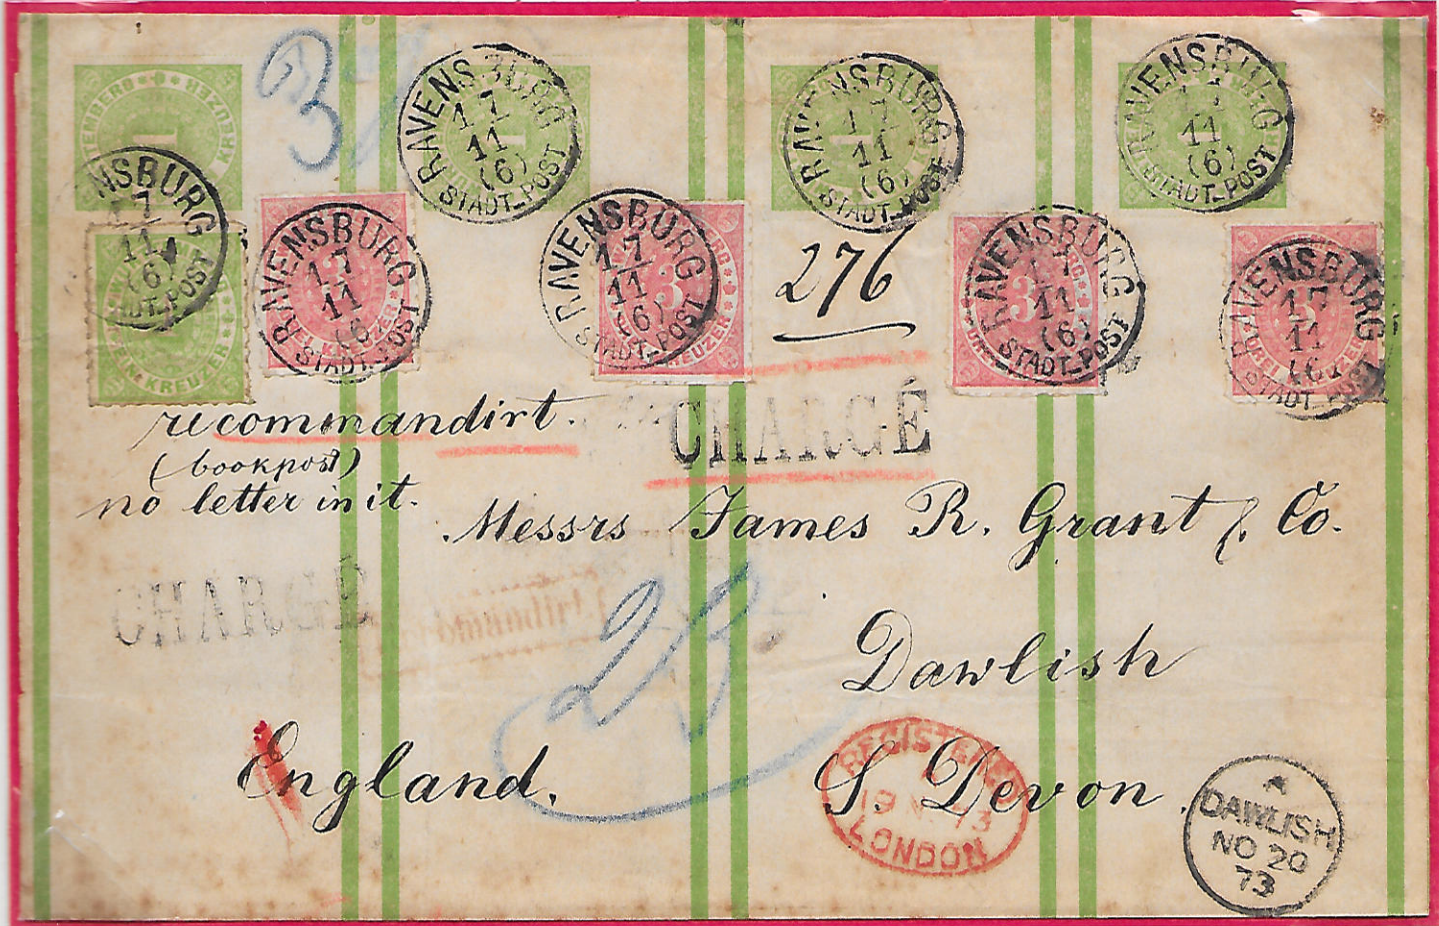 RAVENSBURG
17
11
(6)
STADT-POST
RAVENSBURG
17
11
(6)
STADT-POST
RAVENSBURG
17
11
(6)
STADT-POST
KREUZER
1
1
NSBURG
17
11
(6)
DT-POST
KREUZER
RAVENSBURG
17
11
(6)
STADT-POST
RAVENSBURG
17
11
(6)
STADT-POST
3
KREUZER
276
RAVENSBURG
17
11
(6)
STADT-POST
3
RAVENSBURG
17
11
(6)
STADT-POST
3
recommandirt.
CHARGÉ
(bookpost)
no letter in it.
Messrs James R. Grant & Co.
CHARGÉ
Dawlish
England.
S. Devon.
REGISTERED
19 NO 73
LONDON
DAWLISH
NO 20
73